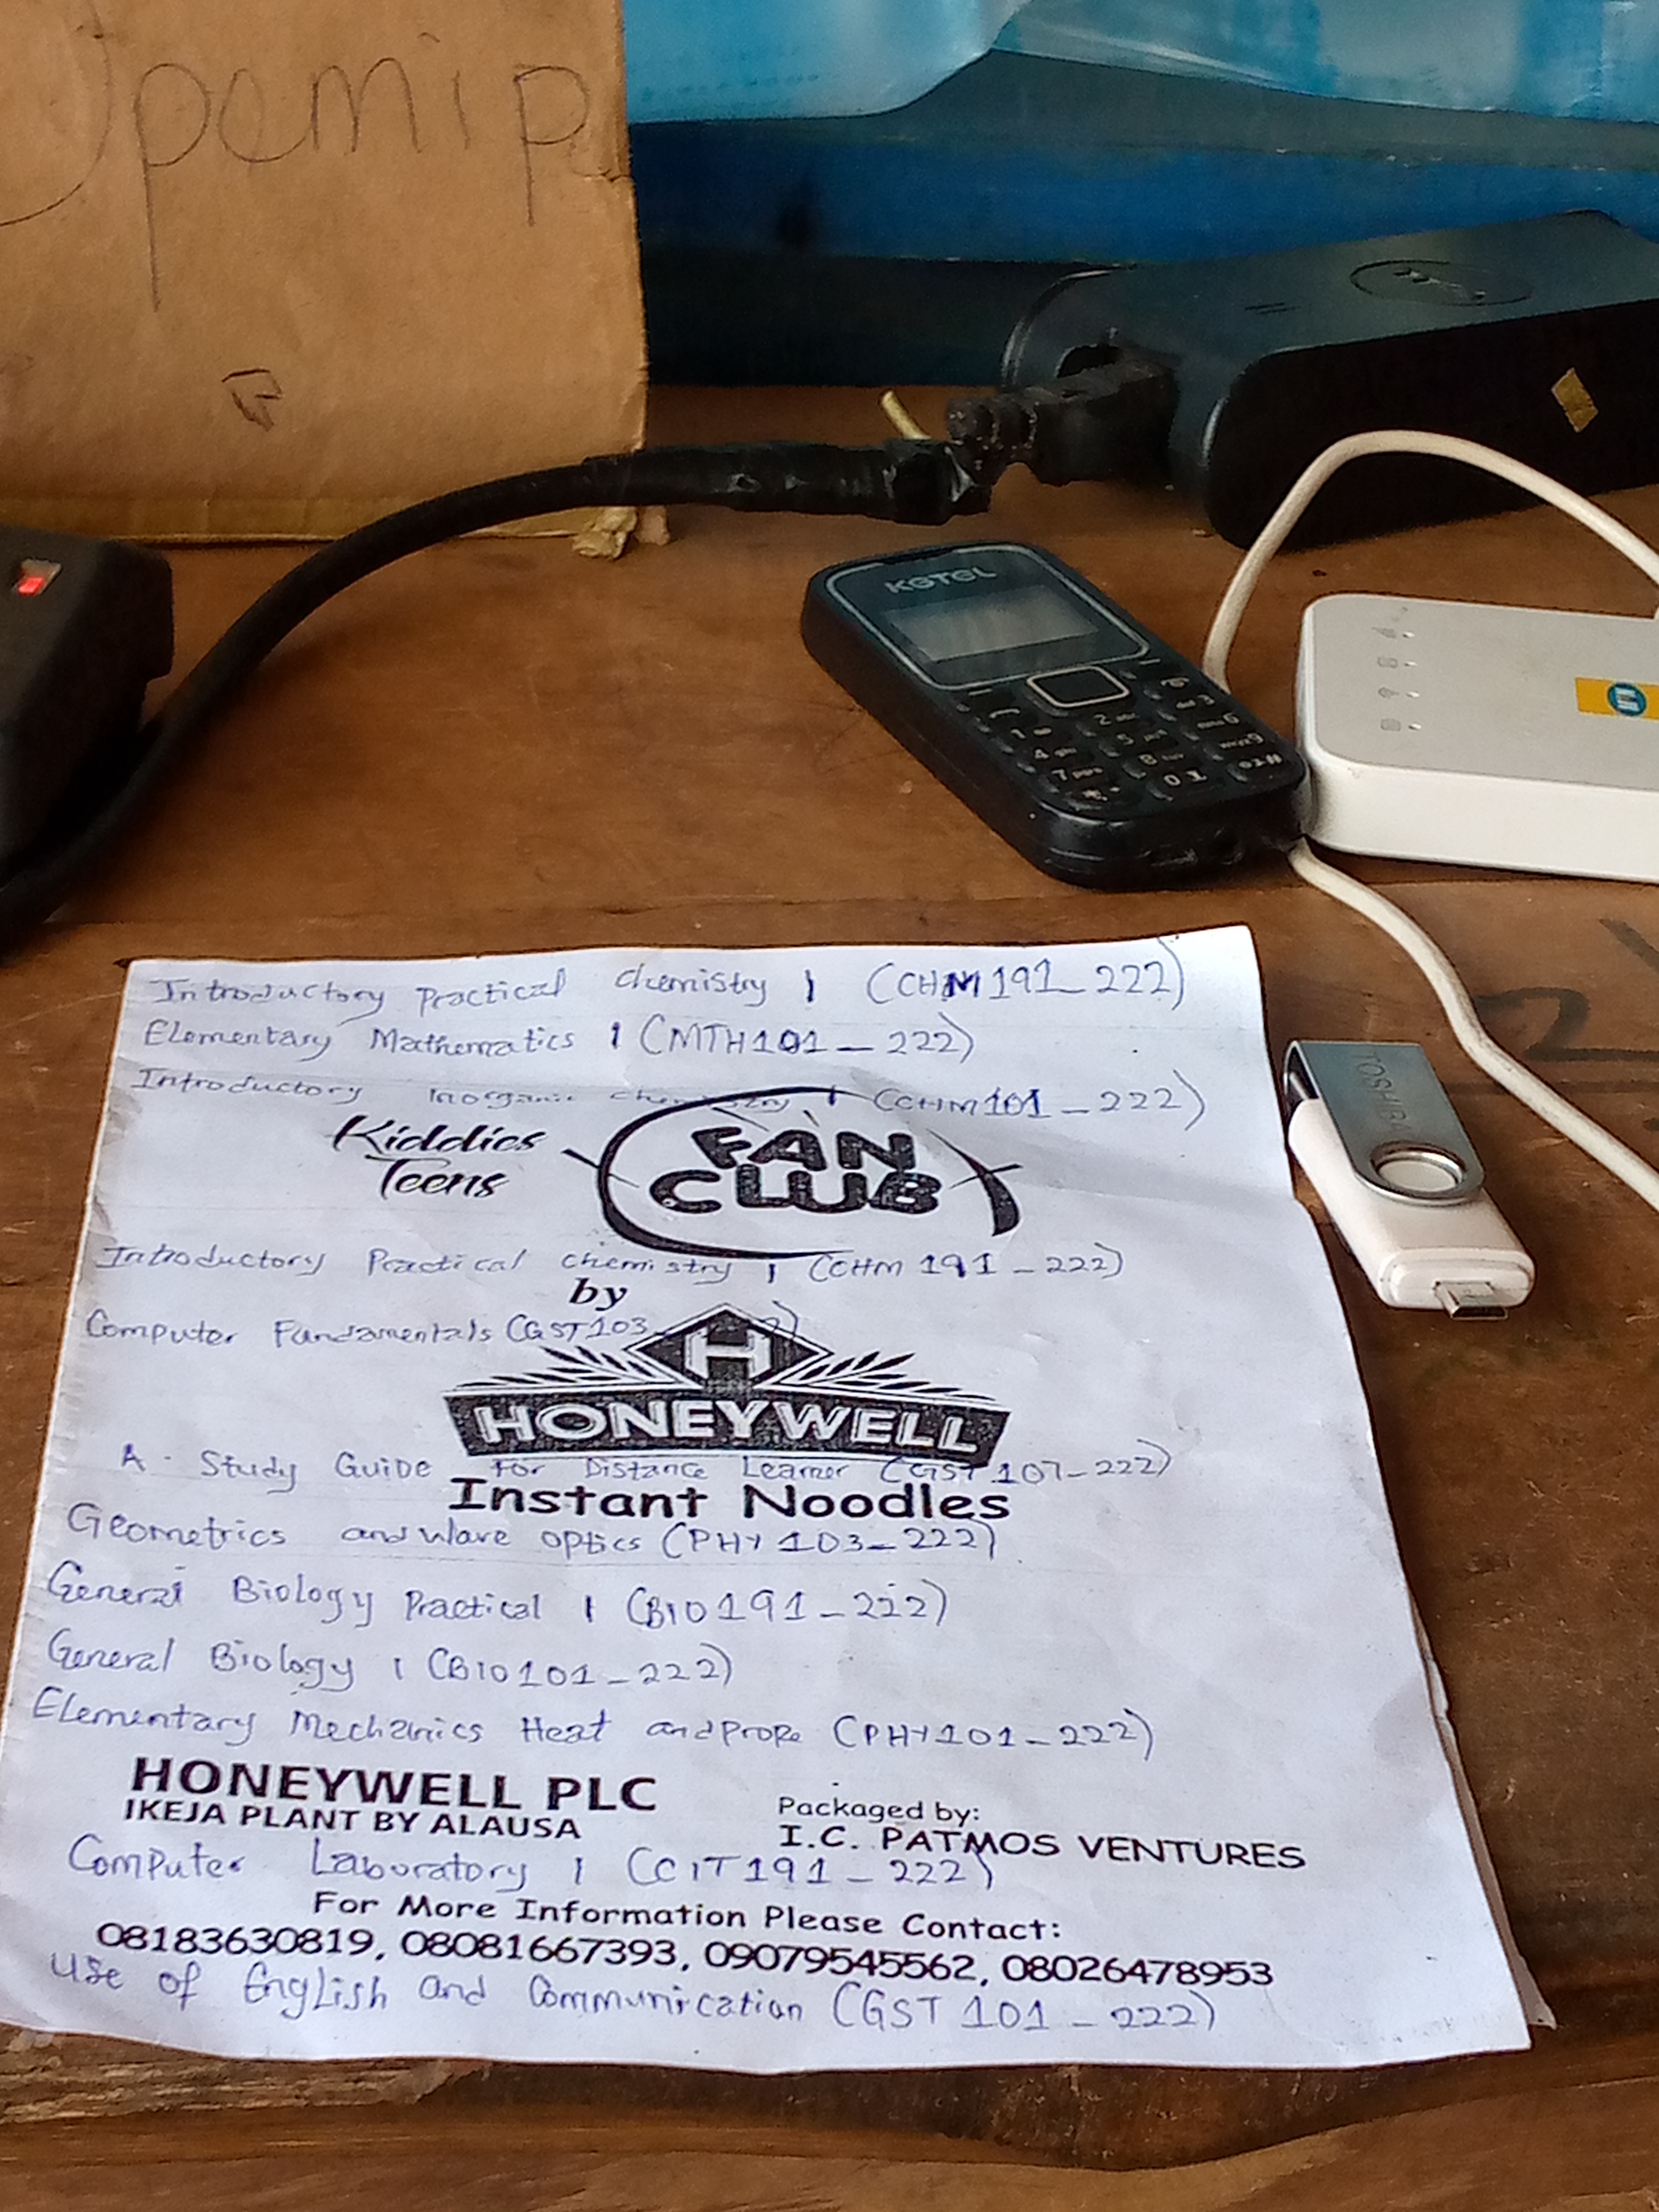 Opemip
KGTEL
TOSHIBA
Introductory Practical chemistry 1 (CHM191_222)
Elementary Mathematics 1 (MTH101_222)
Introductory Inorganic chemistry 1 (CHM101_222)
Kiddies
Teens
FAN
CLUB
Introductory Practical chemistry 1 (CHM 191_222)
by
Computer Fundamentals (GST103
H
HONEYWELL
A. Study Guide For Distance Learner (GST 107_222)
Instant Noodles
Geometrics and Wave optics (PHY 103_222)
General Biology Practical 1 (BIO191_222)
General Biology 1 (BIO101_222)
Elementary Mechanics Heat and prope (PHY101_222)
HONEYWELL PLC
IKEJA PLANT BY ALAUSA
Packaged by:
I.C. PATMOS VENTURES
Computer Laboratory 1 (CIT191_222)
For More Information Please Contact:
08183630819, 08081667393, 09079545562, 08026478953
Use of English and Communication (GST 101_222)